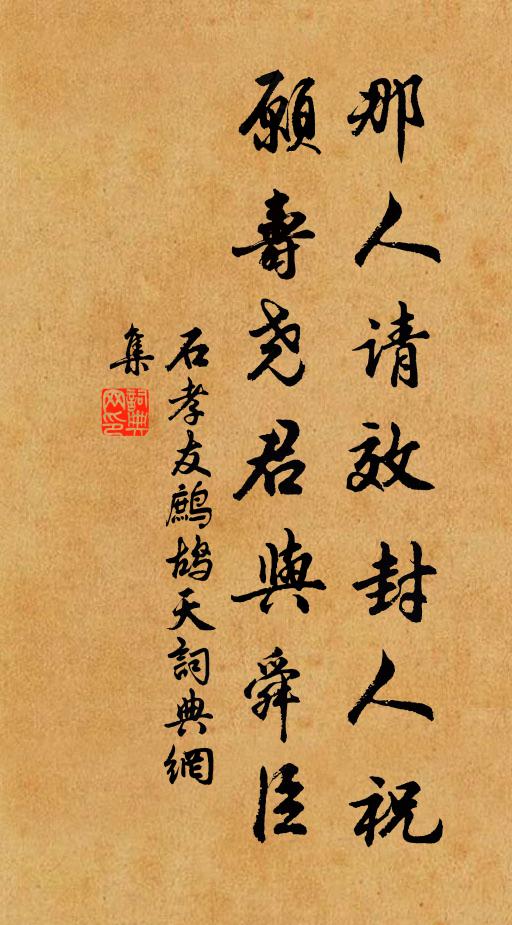 那人请效封人祝
願壽尧君與舜臣
石孝友鷓鴣天詞典網
集
詞典網印